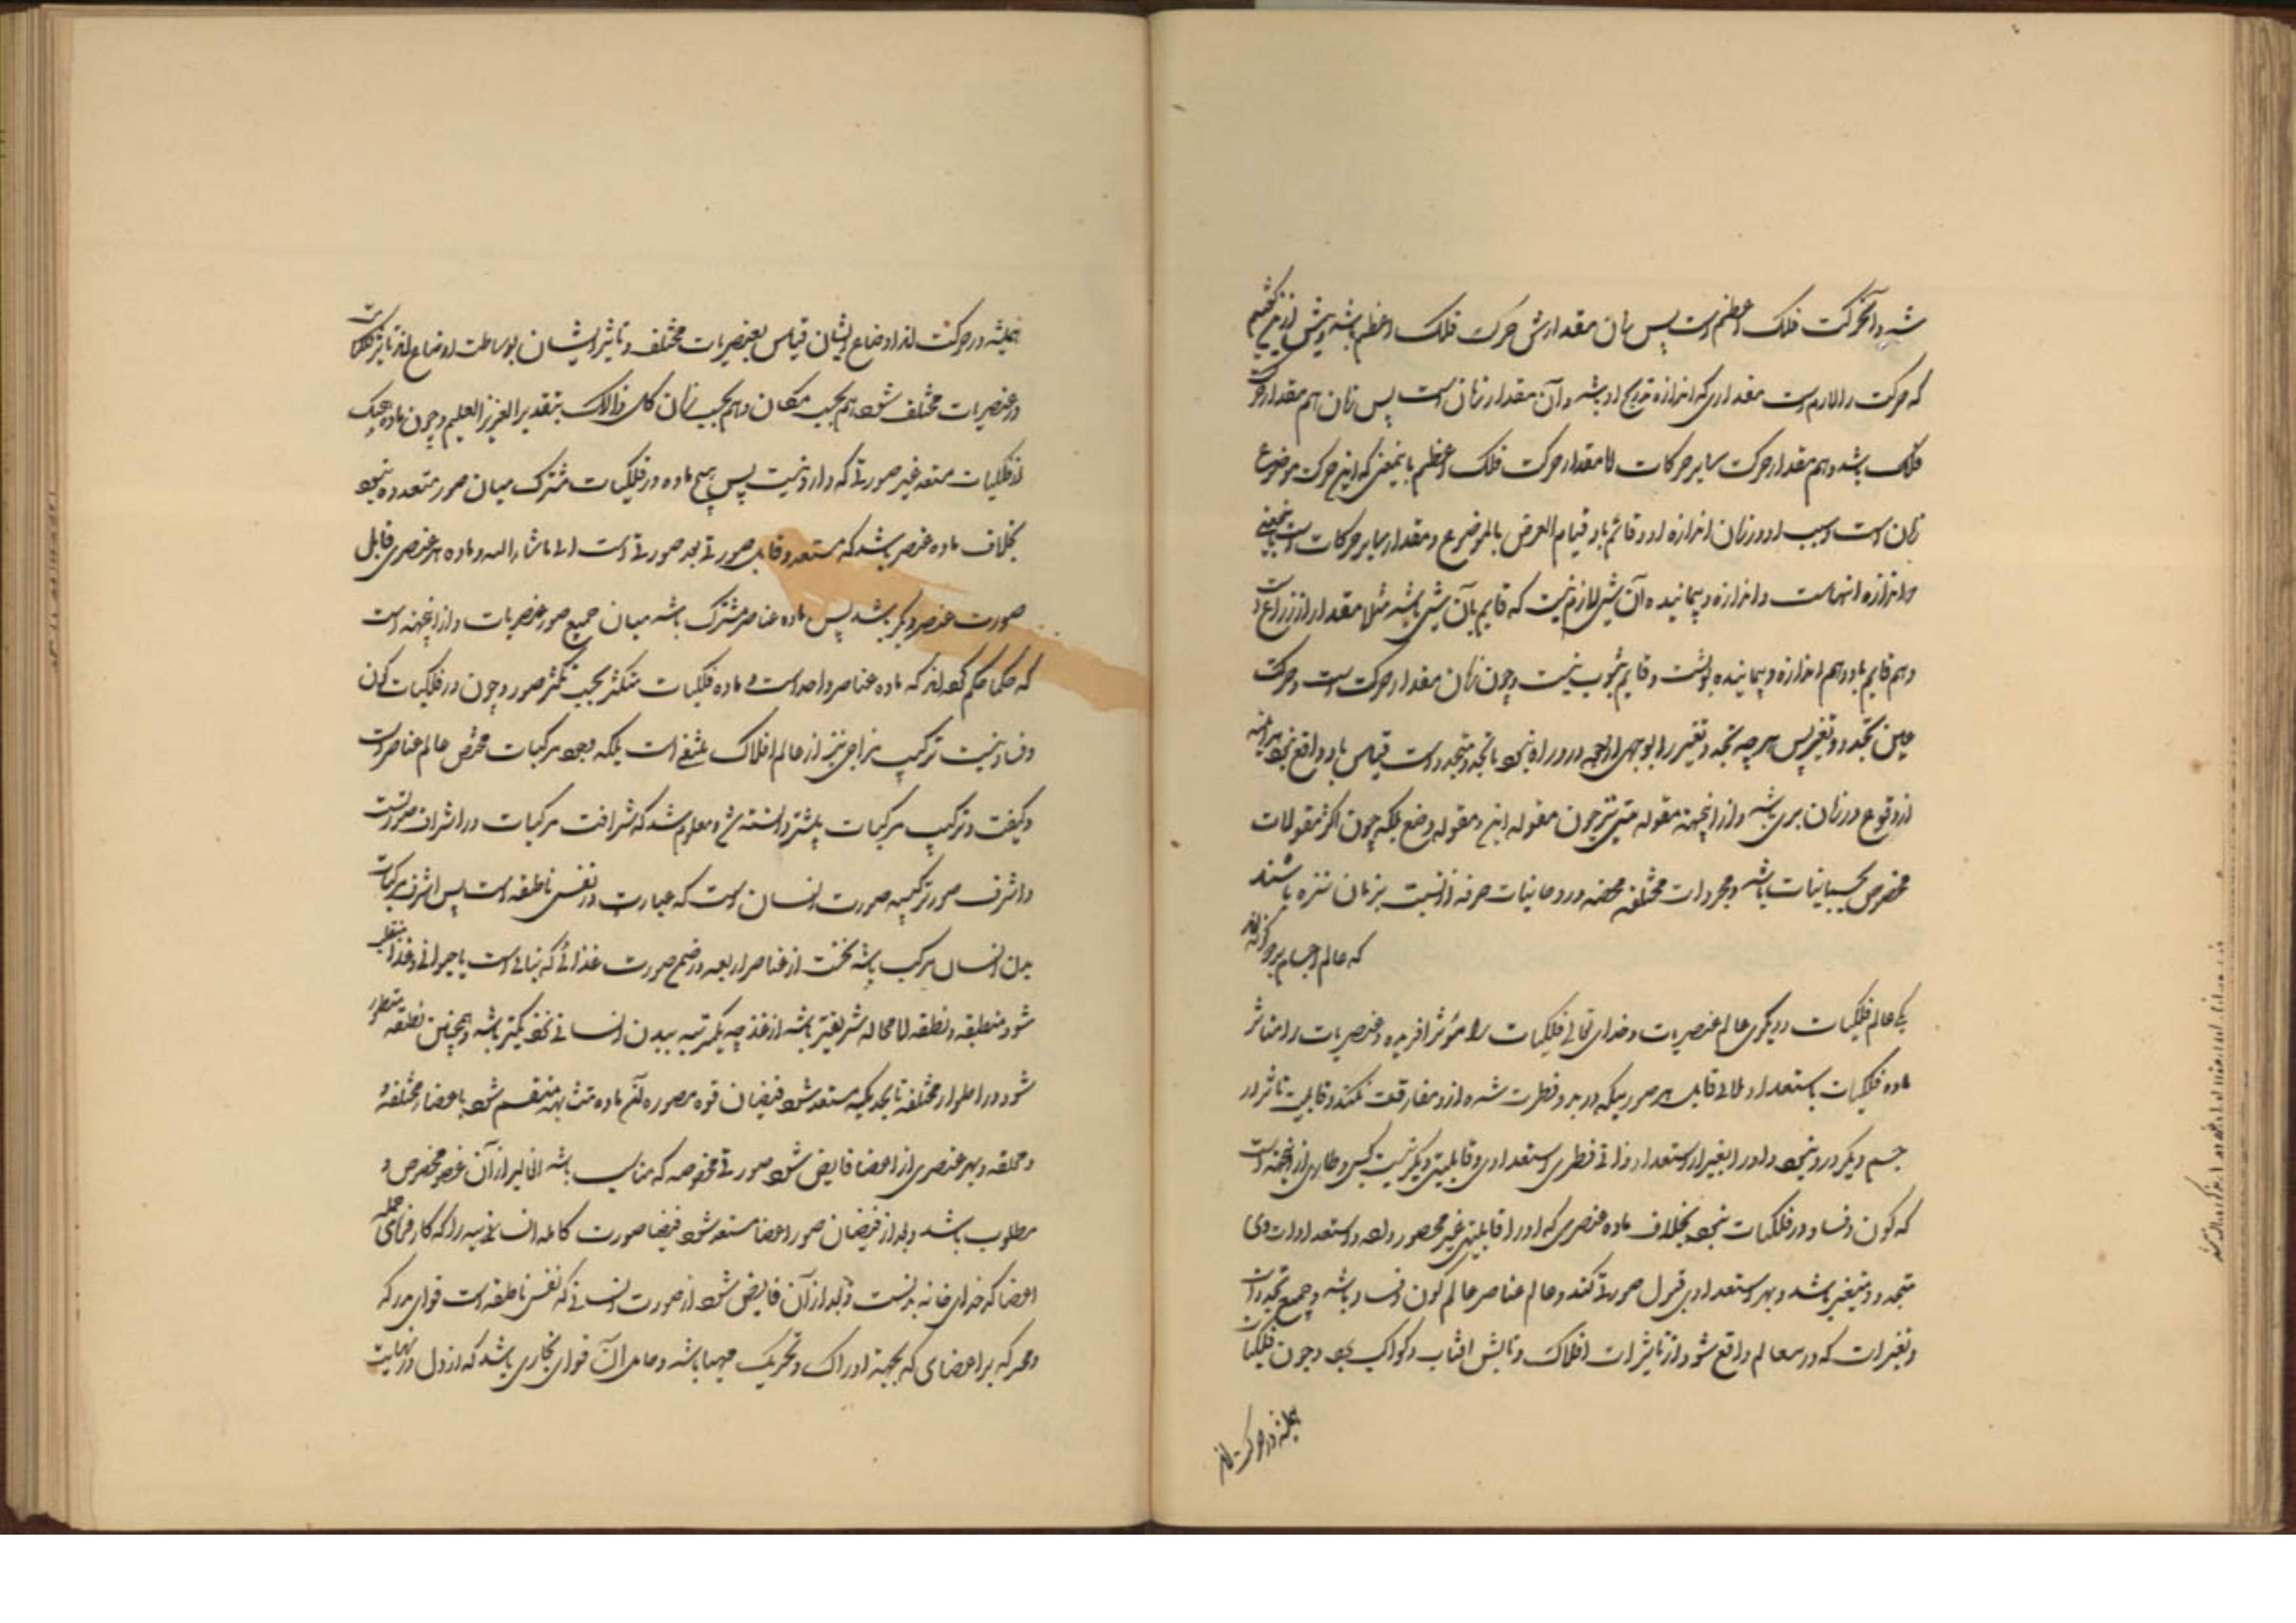 شد و آنحرکت فلک اعظم است پس زمان مقدارش حرکت فلک اعظم باشد و پیش ازین گفتیم
که حرکت را لازم است مقداری که اندازه تدریج او باشد و آن مقدار زمان است پس زمان هم مقدار حرکت
فلک باشد و هم مقدار حرکت سایر حرکات اما مقدار حرکت فلک اعظم باینمعنی که این حرکت موضوع
زمان است و سبب او و زمان اندازه او و قائم باو قیام العرض بالموضوع و مقدار سایر حرکات است باینمعنی
و اندازه انهاست و اندازه و پیمانیده آن شی لازم نیست که قایم بآن شی باشد مثلا مقدار از ذراع
و هم قایم باو و هم اندازه و پیمانیده و قایم بثوب نیست و چون زمان مقدار حرکت است و حرکت
عین تجدد و تغیر پس هرچه تجدد و تغیر را بوجهی از وجوه درو راه نبود با تجدد و متجدد است قیاس باو واقع نبود هرآینه
از وقوع در زمان بری باشد و ازاینجهة مقوله متی نیز چون مقوله این و مقوله وضع بلکه چون اکثر مقولات
مخصوص بجسمانیات باشد و مجردات محضه و روحانیات صرفه از نسبت بزمان منزه باشند
که عالم اجسام بر دو گونه اند
یکی عالم فلکیات و دیگری عالم عنصریات و خدای تعالی فلکیات را مؤثر افریده و عنصریات را متاثر
ماده فلکیات باستعداد قابل هر صورتیکه در بدو فطرت شده ازو مفارقت نکند و قابلیت تاثر از
جسم دیگر درو نبود و او را بغیر از استعداد ذاتی فطری استعدادی و قابلیتی دیگر نیست کسبی و طاری ازاینجهة است
که کون و فساد در فلکیات نبود بخلاف ماده عنصری که او را قابلیتی غیر محصور بود و استعدادات وی
متجدد و متغیر باشد و بهر استعدادی قبول صورتی کند و عالم عناصر عالم کون و فساد باشد و جمیع تجددات
و تغیرات که درین عالم واقع شود از تاثیرات افلاک و تابش افتاب و کواکب بود و چون فلکیات
همیشه در حرکت اند
همیشه در حرکت اند اوضاع ایشان قیاس بعنصریات مختلف و تاثیر ایشان بوساطت اوضاع اند تاثیر فلکیات
در عنصریات مختلف شود هم بحسب مکان و هم بحسب زمان کل ذالک بتقدیر العزیز العلیم و چون ماده هیچیک
از فلکیات مستعد غیر صورتی که دارد نیست پس هیچ ماده در فلکیات مشترک میان صور متعدده نبود
بخلاف ماده عنصر باشد که مستعد و قابل صورتی بعد صورتی است الی ماشاء الله و ماده هر عنصری قابل
صورت عنصر دیگر باشد پس ماده عناصر مشترک باشد میان جمیع صور عنصریات و ازاینجهة است
که حکما حکم کرده اند که ماده عناصر واحد است و ماده فلکیات متکثر بحسب تکثر صور و چون در فلکیات کون
و فساد نیست ترکیب مزاجی نیز از عالم افلاک منتفی است بلکه وجود مرکبات مختص عالم عناصر است
و کیفیت و ترکیب مرکبات پیشتر دانسته شد و معلوم شد که شرافت مرکبات در اشراف صورتست
و اشرف صور ترکیبیه صورت انسان است که عبارت از نفس ناطقه است پس اشرف مرکبات
بدن انسان مرکب باشد نخست از عناصر اربعه در ضمن صورت غذائی که نباتی است یا حیوانی و غذا منقلب
شود بنطقه و نطفه لامحاله شریفتر باشد از غذا چه یکمرتبه ببدن انسانی نزدیکتر باشد و همچنین نطفه متطور
شود در اطوار مختلفه تا بحدیکه مستعد شود فیضان قوه مصوره آن ماده متشابهه منقسم شود باعضاء مختلفه
و علقه و بهر عضوی از اعضا فایض شود صورتی مخصوصه که مناسب باشد افاعیل از آن عضو مخصوص و
مطلوب باشد و بعد از فیضان صور اعضا مستعد شود فیضان صورت کامله انسانیه را که کارفرمای جمله
اعضا که خدای خانه بدنست و بعد از آن فایض شود از صورت انسانی که نفس ناطقه است قوای مدرکه
و محرکه بر اعضای که بجهة ادراک و تحریک مهیا باشد و حامل آن قوای بخاری باشد که از دل